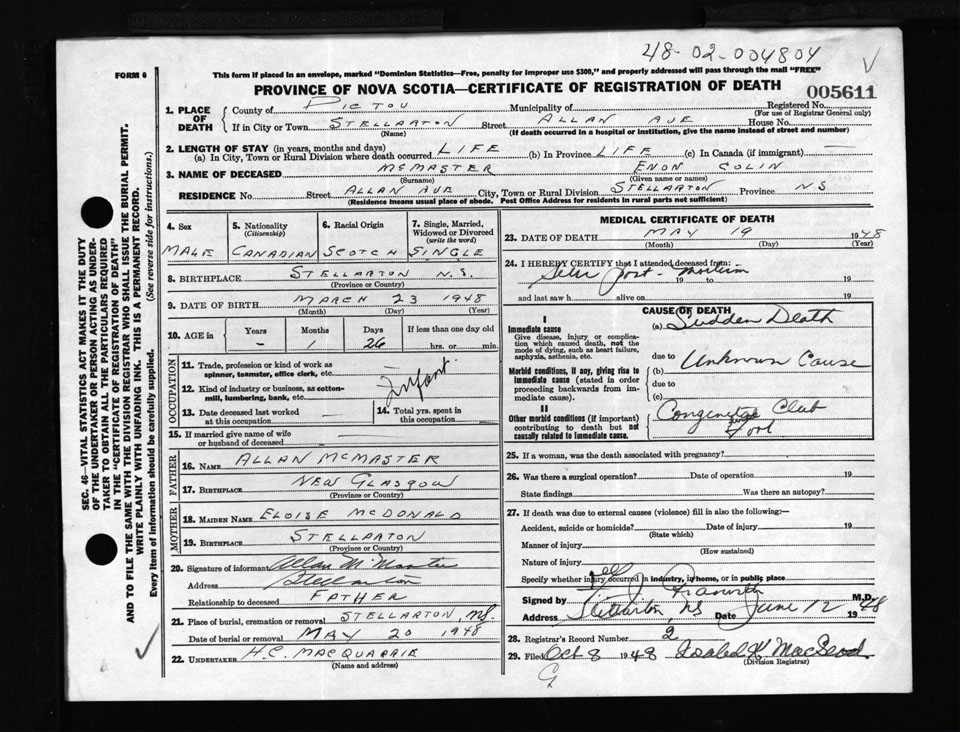 48-02-004804
FORM 6
This form if placed in an envelope, marked "Dominion Statistics—Free, penalty for improper use $300," and properly addressed will pass through the mail "FREE"
PROVINCE OF NOVA SCOTIA—CERTIFICATE OF REGISTRATION OF DEATH
005611
1. PLACE OF DEATH County of PICTOU Municipality of Registered No.
(For use of Registrar General only)
If in City or Town STELLARTON Street ALLAN AVE House No.
(Name) (If death occurred in a hospital or institution, give the name instead of street and number)
2. LENGTH OF STAY (in years, months and days)
(a) In City, Town or Rural Division where death occurred LIFE (b) In Province LIFE (c) In Canada (if immigrant) —
3. NAME OF DECEASED MCMASTER ENON COLIN
(Surname) (Given name or names)
RESIDENCE No. Street ALLAN AVE City, Town or Rural Division STELLARTON Province NS
(Residence means usual place of abode. Post Office Address for residents in rural parts not sufficient)
4. Sex 5. Nationality (Citizenship) 6. Racial Origin 7. Single, Married, Widowed or Divorced (write the word)
MALE CANADIAN SCOTCH SINGLE
8. BIRTHPLACE STELLARTON N.S.
(Province or Country)
9. DATE OF BIRTH MARCH 23 1948
(Month) (Day) (Year)
10. AGE in Years Months Days If less than one day old
- 1 26 hrs. or min.
OCCUPATION
11. Trade, profession or kind of work as spinner, teamster, office clerk, etc. —
Infant
12. Kind of industry or business, as cotton-mill, lumbering, bank, etc.
13. Date deceased last worked at this occupation — 14. Total yrs. spent in this occupation
15. If married give name of wife or husband of deceased —
FATHER
16. NAME ALLAN MCMASTER
17. BIRTHPLACE NEW GLASGOW
(Province or Country)
MOTHER
18. MAIDEN NAME ELOISE MCDONALD
19. BIRTHPLACE STELLARTON
(Province or Country)
20. Signature of informant Allan McMaster
Address Stellarton
Relationship to deceased FATHER
21. Place of burial, cremation or removal STELLARTON, NS.
Date of burial or removal MAY 20 1948
22. UNDERTAKER H.C. MACQUARRIE
(Name and address)
MEDICAL CERTIFICATE OF DEATH
23. DATE OF DEATH MAY 19 1948
(Month) (Day) (Year)
24. I HEREBY CERTIFY that I attended deceased from:
post-mortem
19 to 19
and last saw h alive on 19
CAUSE OF DEATH
I
Immediate cause
Give disease, injury or complication which caused death, not the mode of dying, such as heart failure, asphyxia, asthenia, etc.
(a) Sudden Death
due to
Morbid conditions, if any, giving rise to immediate cause (stated in order proceeding backwards from immediate cause).
(b) Unknown Cause
due to
(c)
II
Other morbid conditions (if important) contributing to death but not causally related to immediate cause.
Congenital Club Foot
25. If a woman, was the death associated with pregnancy?
26. Was there a surgical operation? Date of operation 19
State findings Was there an autopsy?
27. If death was due to external causes (violence) fill in also the following:—
Accident, suicide or homicide? Date of injury 19
(State which)
Manner of injury
(How sustained)
Nature of injury
Specify whether injury occurred in industry, in home, or in public place
Signed by M.D.
Address Stellarton, NS Date June 12 1948
28. Registrar's Record Number 2
29. Filed Oct 8 1948 Isabel K MacLeod
(Division Registrar)
G
SEC. 46—VITAL STATISTICS ACT MAKES IT THE DUTY
OF THE UNDERTAKER OR PERSON ACTING AS UNDER-
TAKER TO OBTAIN ALL THE PARTICULARS REQUIRED
IN THE "CERTIFICATE OF REGISTRATION OF DEATH"
AND TO FILE THE SAME WITH THE DIVISION REGISTRAR WHO SHALL ISSUE THE BURIAL PERMIT.
WRITE PLAINLY WITH UNFADING INK. THIS IS A PERMANENT RECORD.
Every item of information should be carefully supplied. (See reverse side for instructions.)